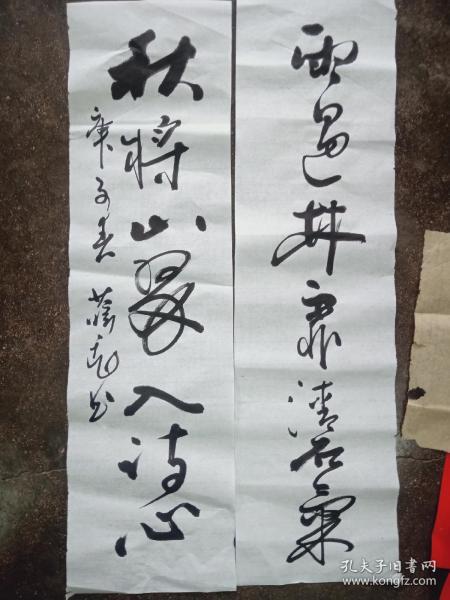 雨過林霏清石氣
秋將山翠入詩心
庚子春
孔夫子旧书网
www.kongfz.com